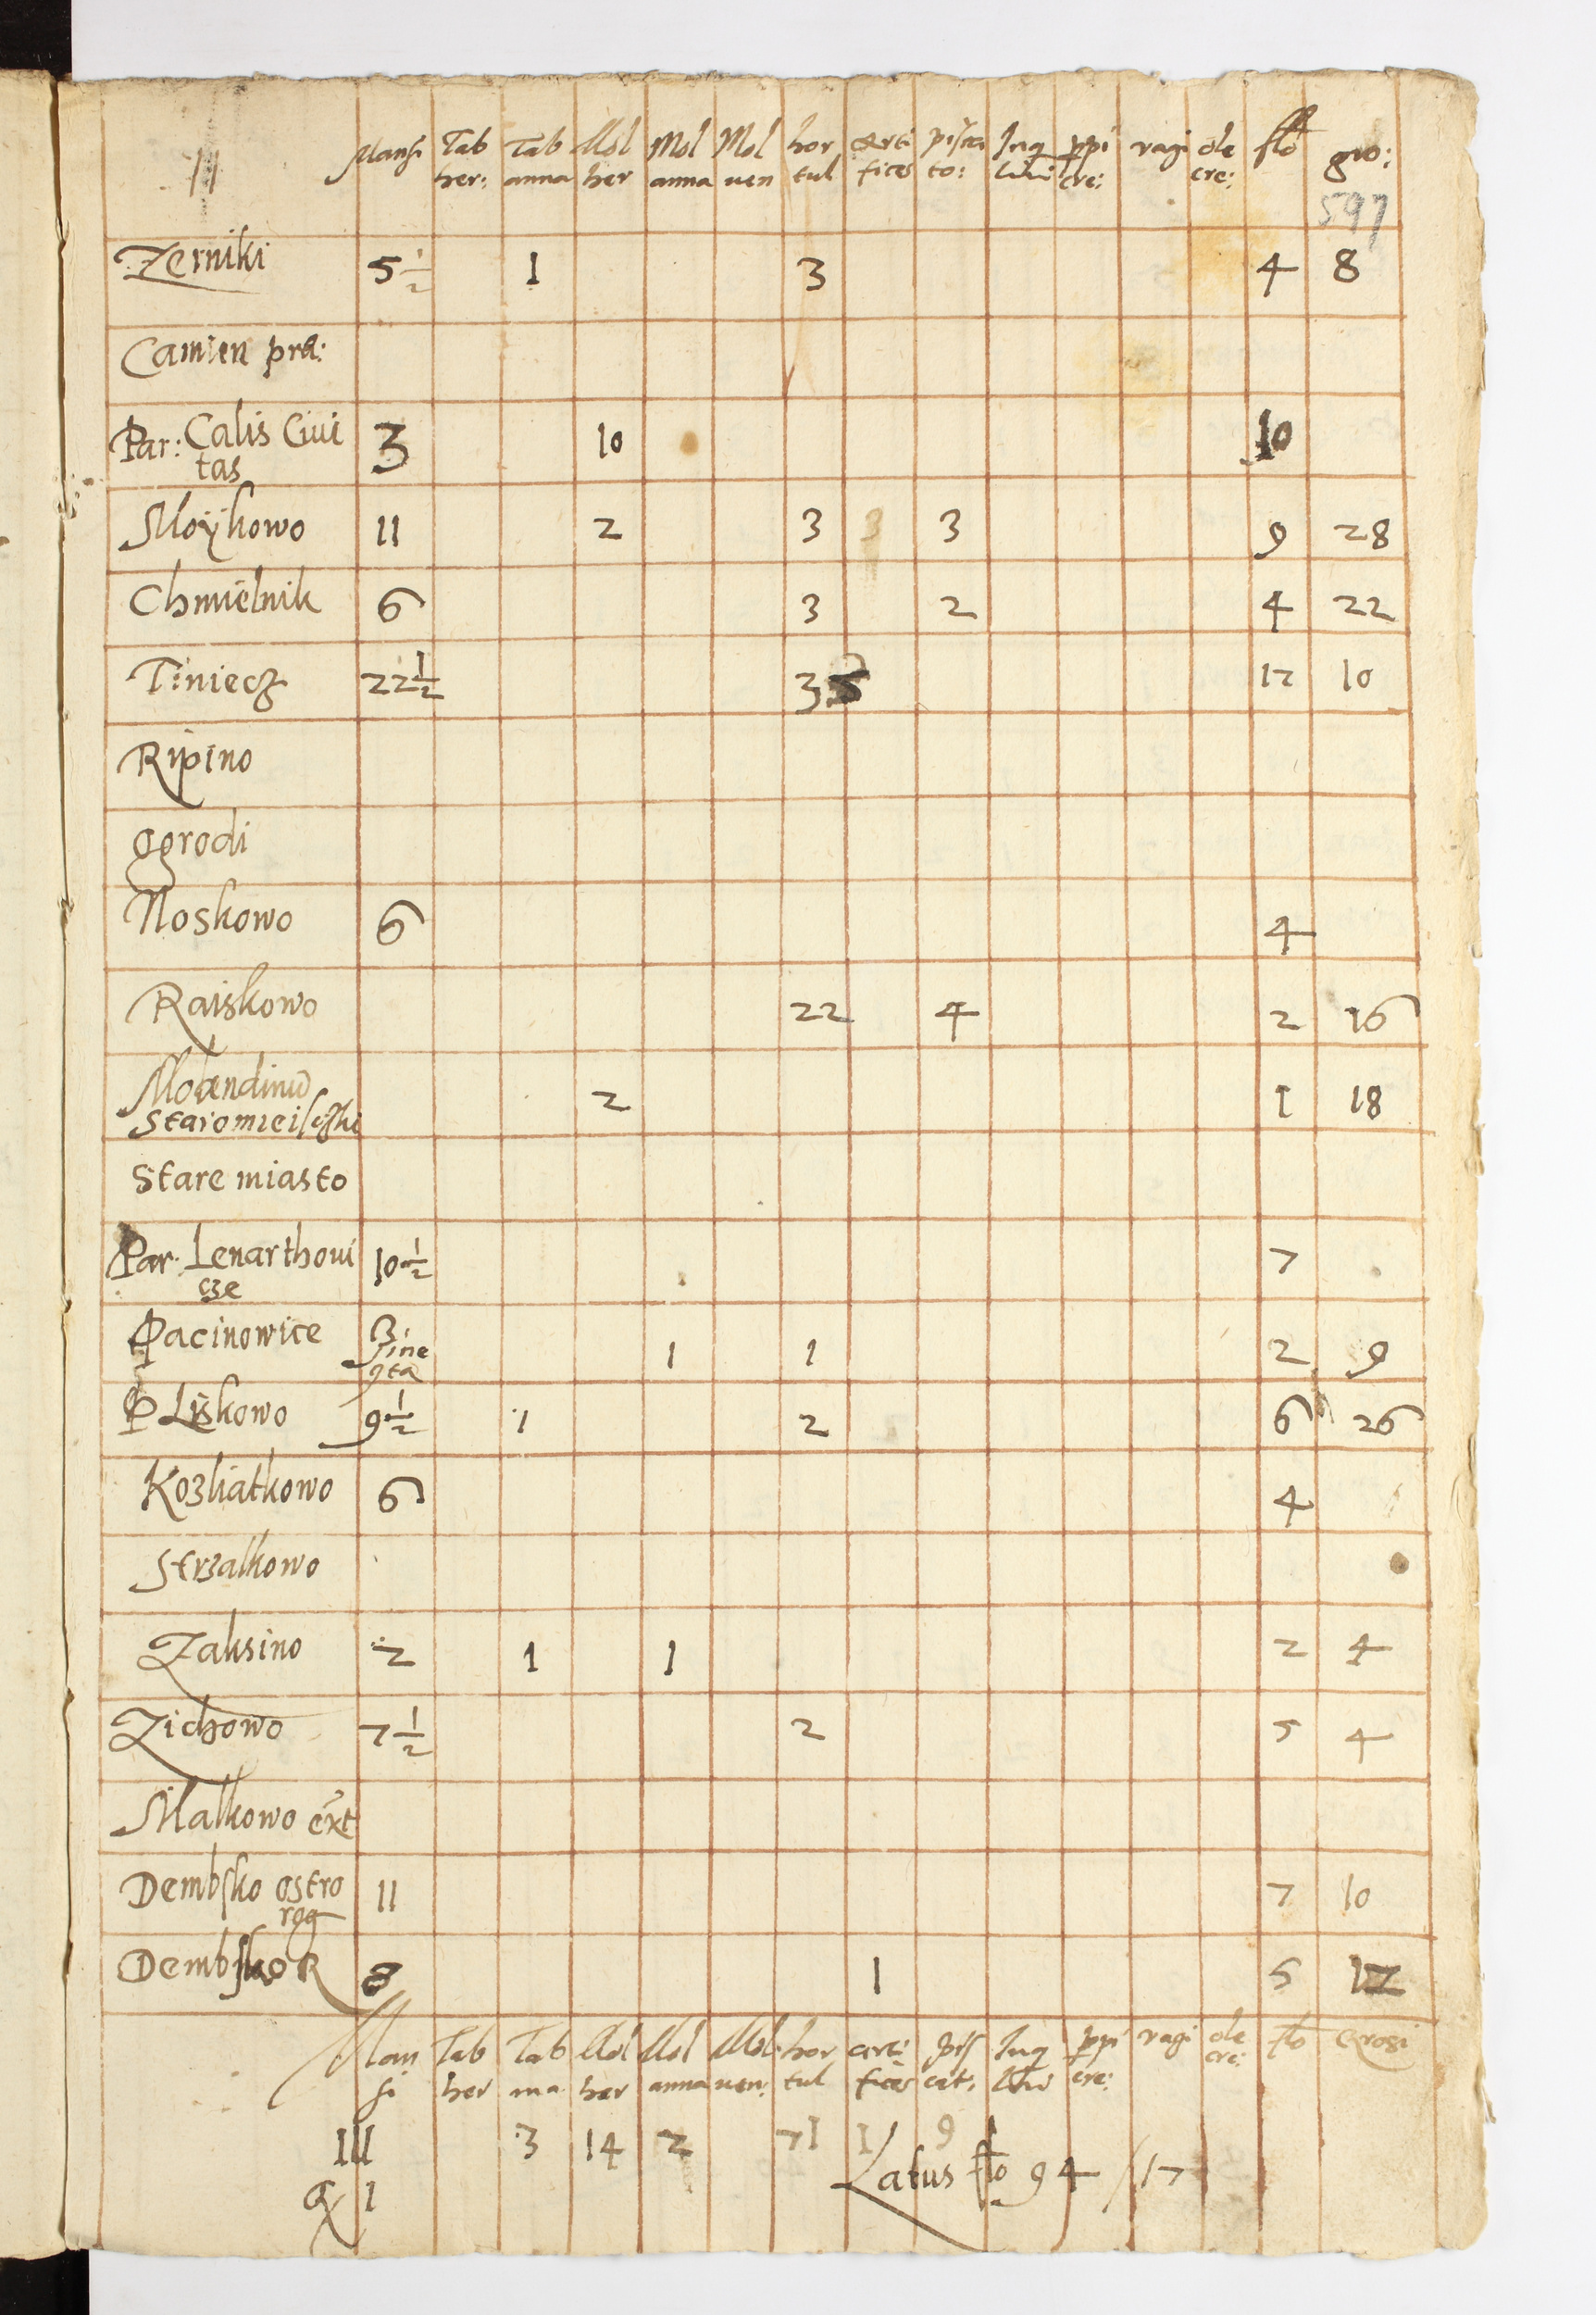 Mansi Tab her: Tab anna Mol her Mol anna Mol uen hor tul arti fices pisca to: Inq lini ppi cre: vagi ole cre: flo gro:
597
Zerniki 5 1/2 1 3 4 8
Camien pra:
Par: Calis Ciui 3 10 10
tas
Moykowo 11 2 3 3 3 9 28
Chmielnik 6 3 2 4 22
Tiniecz 22 1/2 35 12 10
Ripino
ogrodi
Noskowo 6 4
Raiskowo 22 4 2 16
Molendinu 2 1 18
Stare miasto
Par. Lenarthoui 10 1/2 7
cze
Pacinowice 1 1 2 9
P Liskowo 9 1/2 1 2 6 26
Kozliatkowo 6 4
Strzalkowo
Zaksino 2 1 1 2 4
Zichowo 7 1/2 2 5 4
Malkowo ext
Dembsko ostro 11 7 10
rog
Dembsko R 8 1 5 12
Man si Tab her Tab ma Mol her Mol anna Mol. uen: hor tul arti fices pis cat: Inq ppi cre: vagi ole cre: flo Grosi
111 3 14 2 71 1 9
Latus flo 94 / 17
q 1